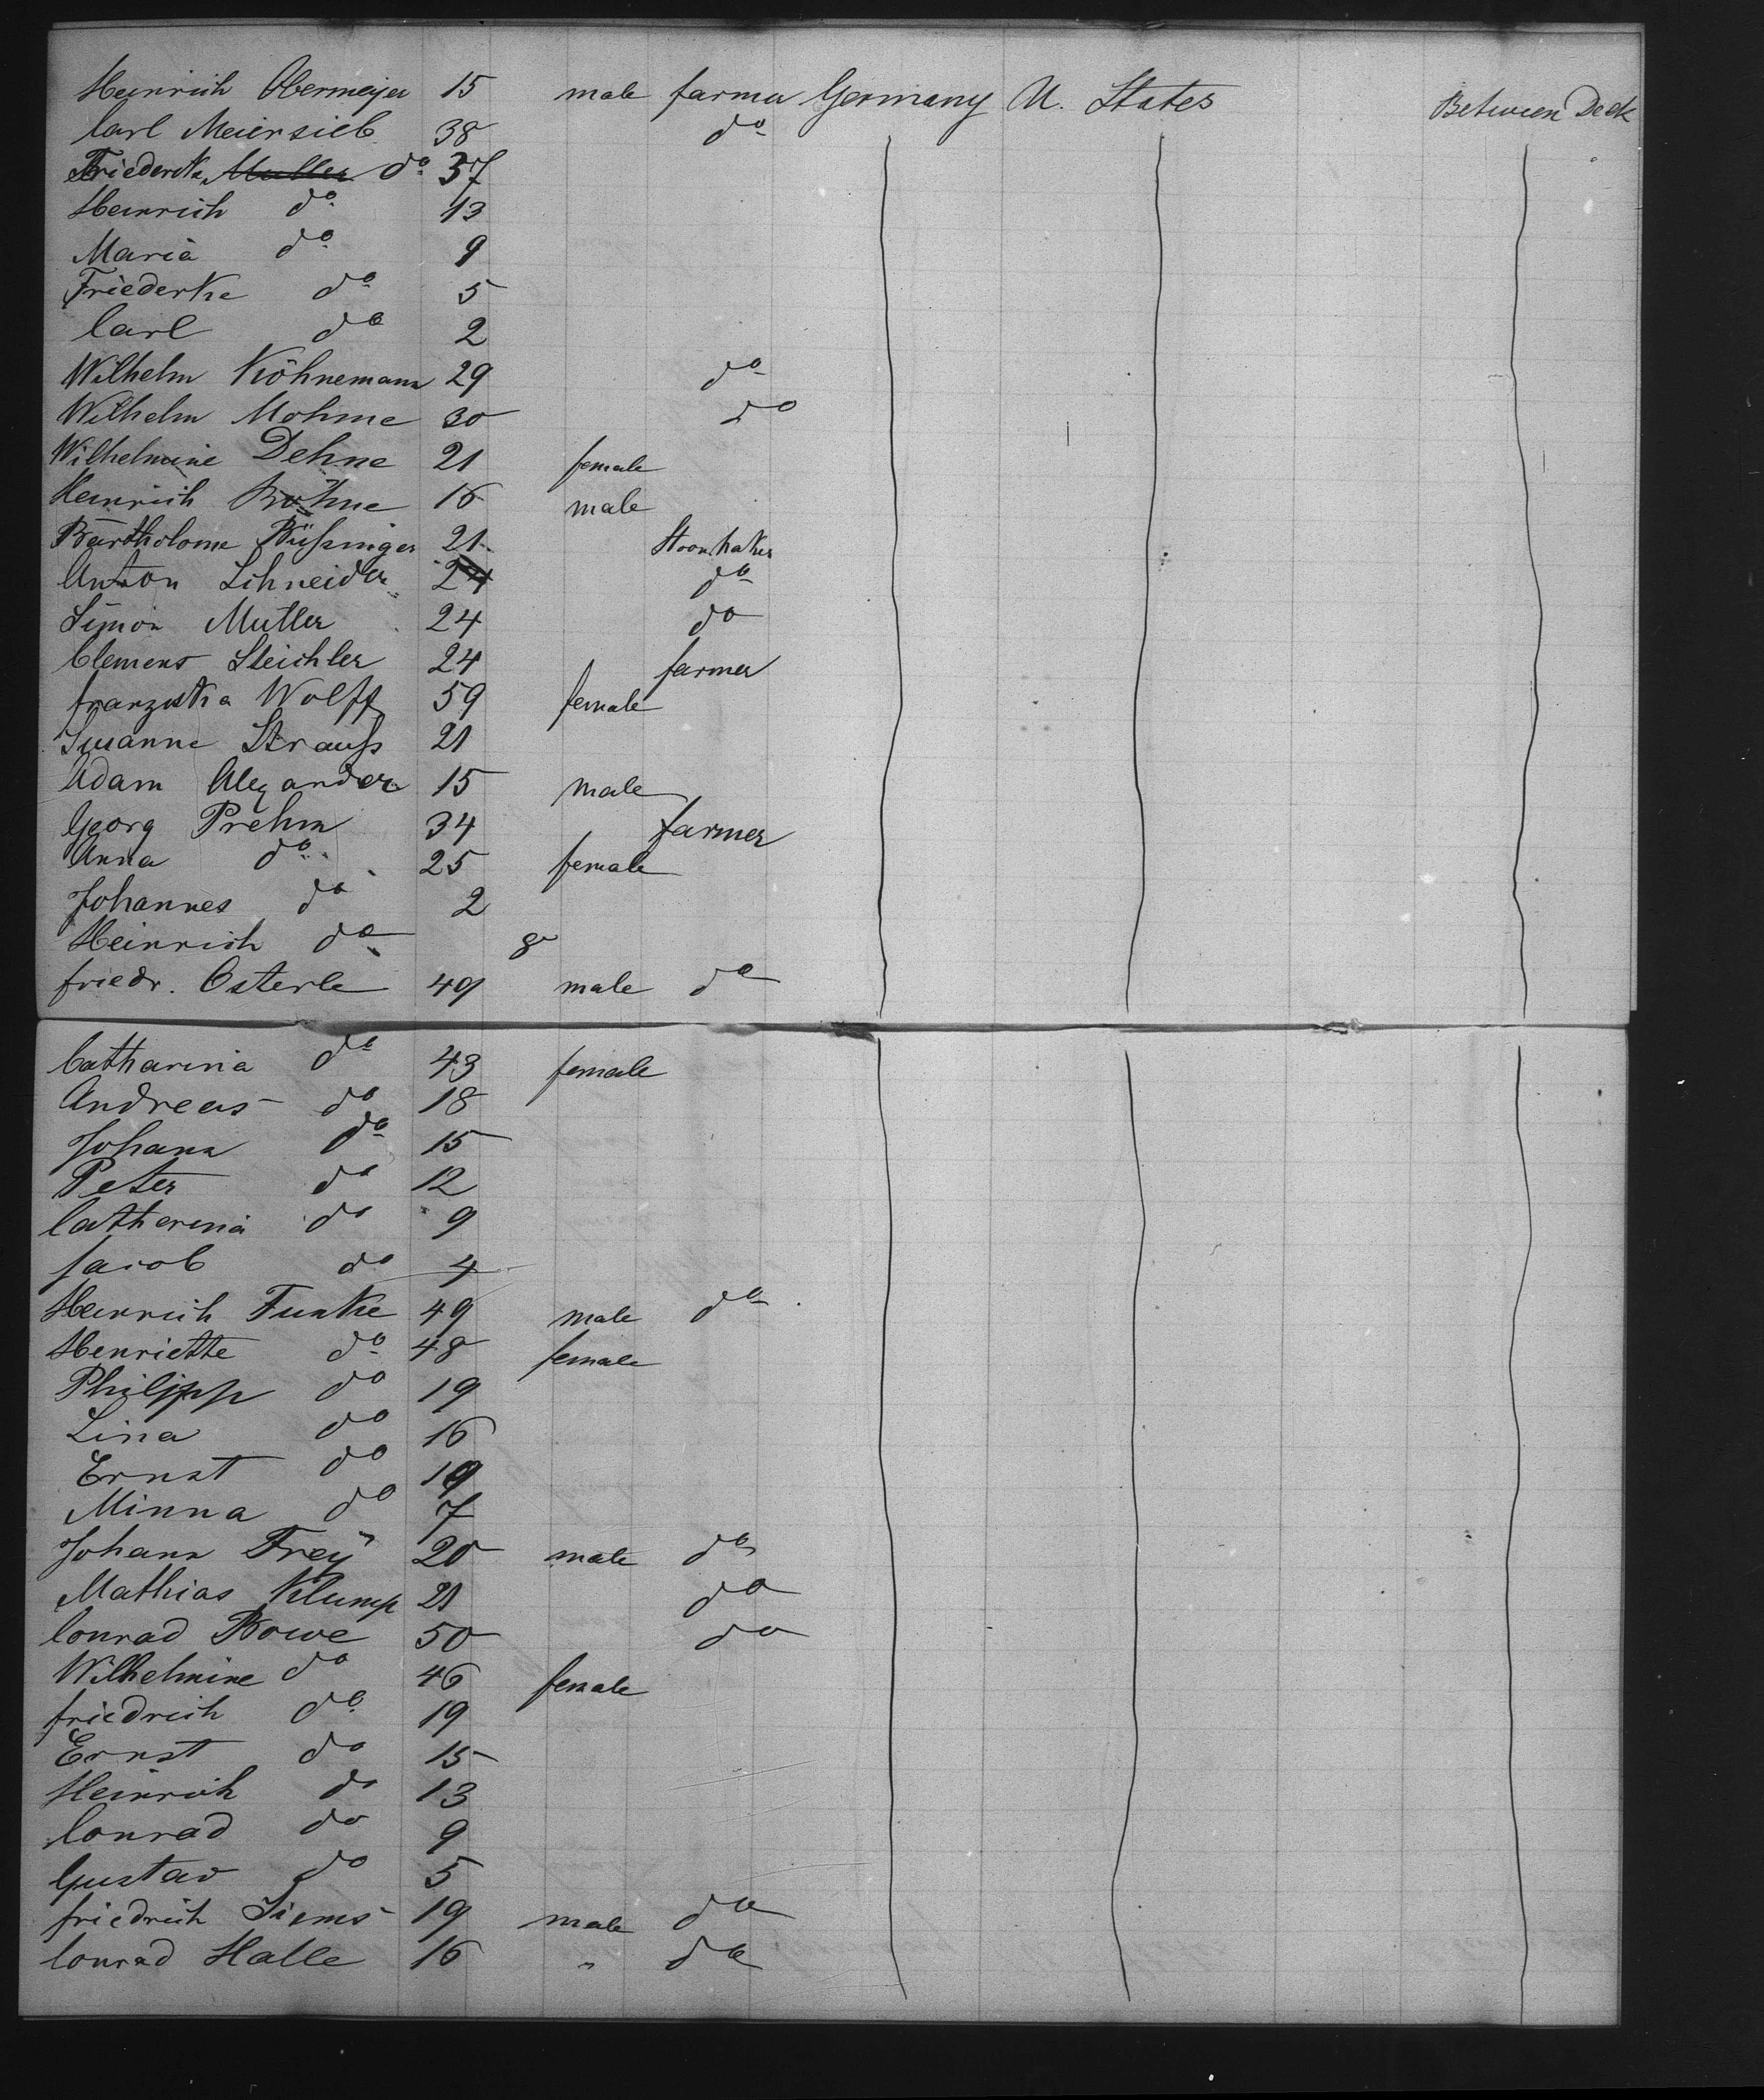 Heinrich Obermeyer 15 male farmer Germany U. States Between Deck
Carl Meiersieb 38 do
Friederike Muller do 37
Heinrich do 13
Maria do 9
Friederke do 5
Carl do 2
Wilhelm Köhnemann 29 do
Wilhelm Mohme 30 do
Wilhelmine Dehne 21 female
Heinrich Böhne 16 male
Bartholome Büßinger 21
Anton Schneider 24 do
Simon Muller 24 do
Clemens Steichler 24 farmer
franziska Wolff 59 female
Susanne Strauß 21
Adam Alexander 15 male
Georg Prehm 34 farmer
Anna do 25 female
Johannes do 2
Heinrich do 8
friedr. Osterle 49 male do
Catharina do 43 female
Andreas do 18
Johann do 15
Peter do 12
Catherina do 9
Jacob do 4
Heinrich Funke 49 male do
Henriette do 48 female
Philipp do 19
Lina do 16
Ernst do 19
Minna do 7
Johann Freÿ 20 male do
Mathias Klump 21 do
Conrad Bowe 50 do
Wilhelmine do 46 female
friedrich do 19
Ernst do 15
Heinrich do 13
Conrad do 9
Gustav do 5
friedrich Siems 19 male do
Conrad Halle 16 " do